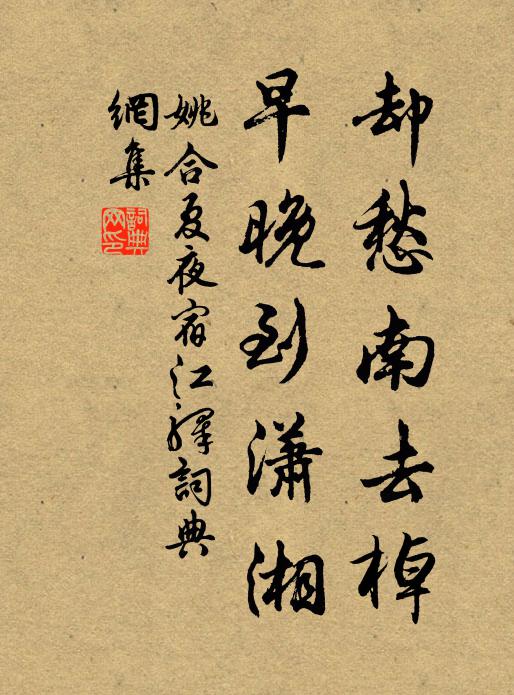 却愁南去棹
早晚到瀟湘
姚合夏夜宿江驛詞典
網集
詞典
网印